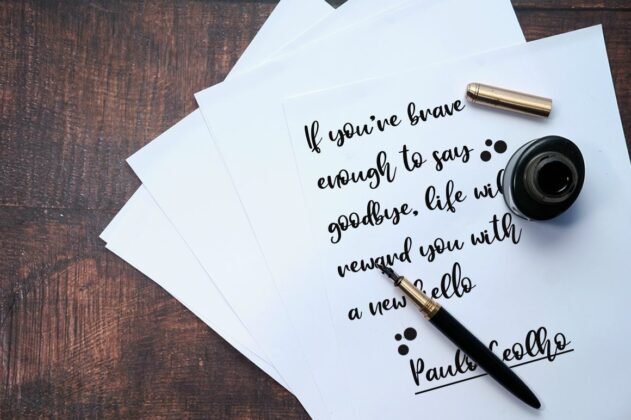 If you're brave
enough to say
goodbye, life will
reward you with
a new hello
Paulo Coelho